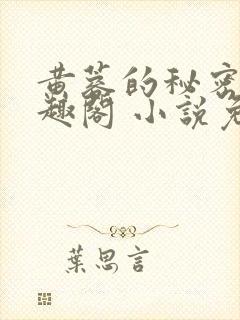 黄蓉的秘密
趣閣 小說免
葉思言